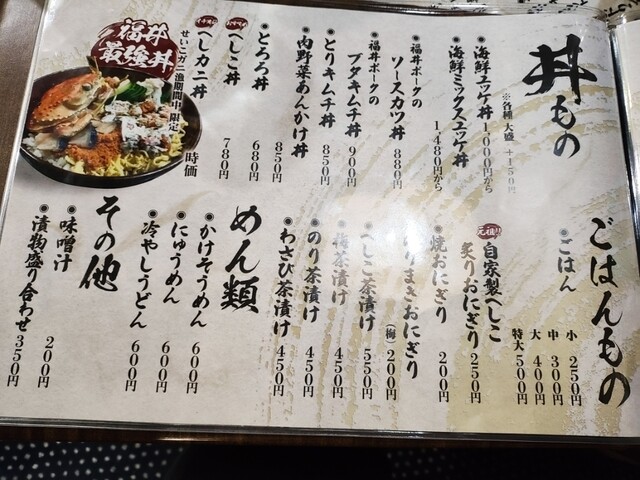 丼もの
※各種 大盛 +150円
海鮮ユッケ丼 1,000円から
海鮮ミックスユッケ丼 1,480円から
福井ポークの
ソースカツ丼 880円
福井ポークの
ブタキムチ丼 900円
とりキムチ丼 850円
肉野菜あんかけ丼 850円
とろろ丼 680円
へしこ丼 780円
へしカニ丼 時価
せいこガニ漁期間中限定
福井
最強丼
ごはんもの
ごはん
小 250円
中 300円
大 400円
特大 500円
元祖!!
自家製へしこ
炙りおにぎり 250円
焼おにぎり 200円
のりまきおにぎり
(梅) 200円
へしこ茶漬け 550円
梅茶漬け 450円
のり茶漬け 450円
わさび茶漬け 450円
めん類
かけそうめん 600円
にゅうめん 600円
冷やしうどん 600円
その他
味噌汁 200円
漬物盛り合わせ 350円